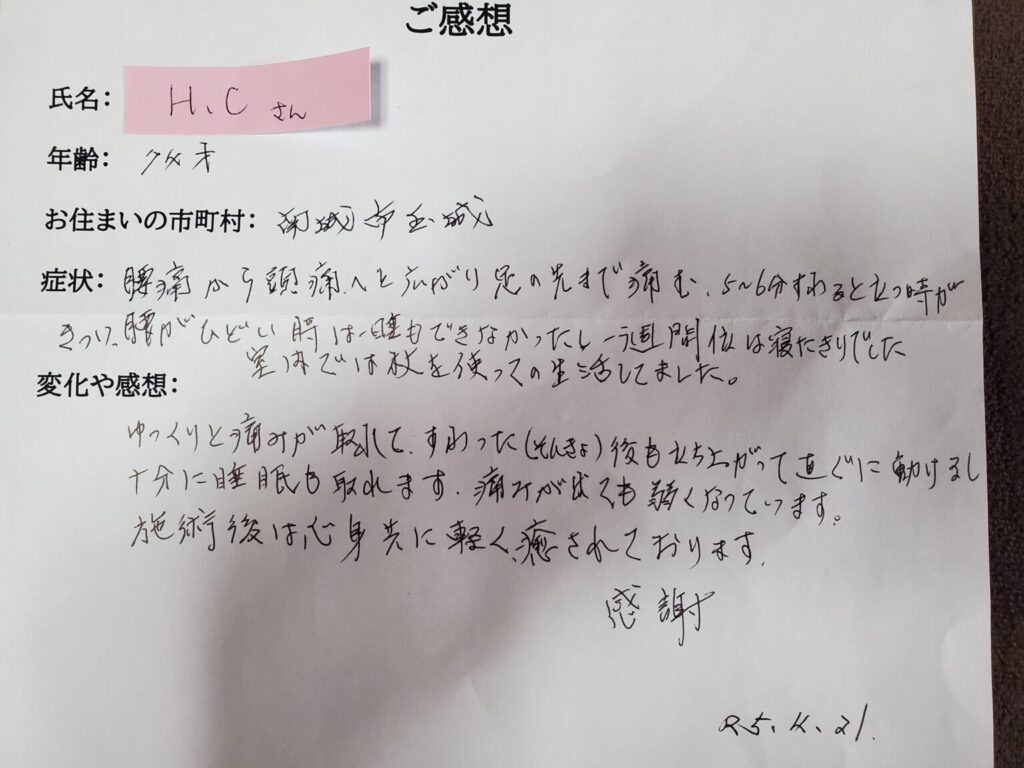 ご感想
氏名: H、C さん
年齢: 才
お住まいの市町村: 南城市玉城
症状: 腰痛から頭痛へと広がり足の先まで痛む、5〜6分すわると立つ時が
きつい、腰がひどい時は一睡もできなかったし一週間位は寝たきりでした
室内では杖を使っての生活してました。
変化や感想:
ゆっくりと痛みが取れて、すわった(そんきょ)後も立ち上がって直ぐに動けるし
十分に睡眠も取れます、痛みが出ても弱くなっています。
施術後は心身共に軽く、癒されております。
感謝
R5、4、21.